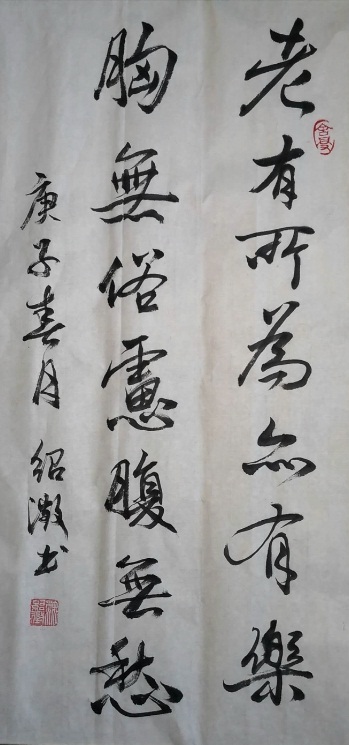 老有所為亦有樂
胸無俗慮腹無愁
庚子春月 紹澂书